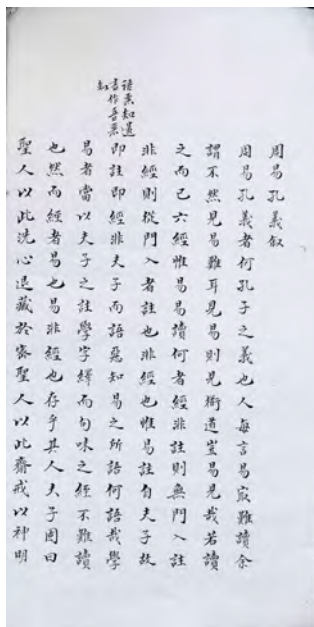 語惡知遺
書作吾惡
知
周易孔義叙
周易孔義者何孔子之義也人每言易最難讀余
謂不然見易難耳見易則見衟道豈易見哉若讀
之而已六經惟易易讀何者經非註則無門入註
非經則從門入者註也非經也惟易註自夫子故
即註即經非夫子而語惡知易之所語何語哉學
易者當以夫子之註學字繹而句味之經不難讀
也然而經者易也易非經也存乎其人夫子固曰
聖人以此洗心退藏於密聖人以此齋戒以神明